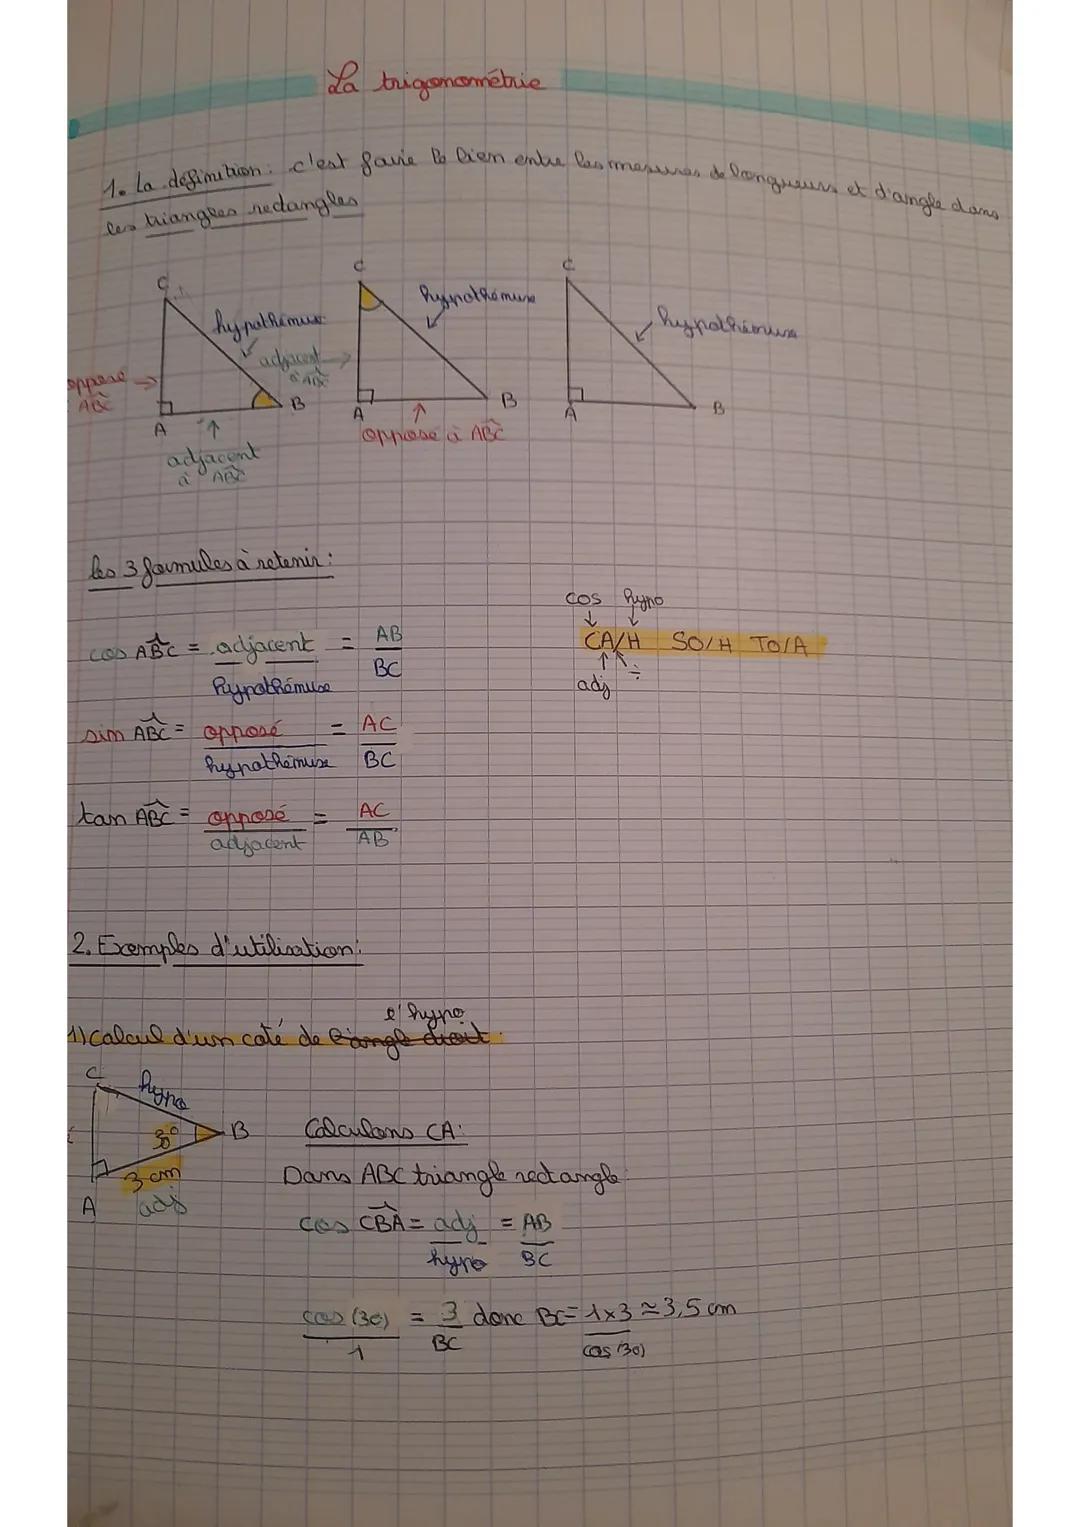 La trigonométrie
1. La définition : c'est faire le lien entre les mesures de longueurs et d'angle dans
les triangles rectangles
C
hypothénuse
adjacent
à ABC
opposé
ABC
A
B
adjacent
à ABC
C
hypothénuse
A
B
opposé à ABC
C
hypothénuse
A
B
les 3 formules à retenir :
cos ABC = adjacent = AB
hypothénuse BC
sin ABC = opposé = AC
hypothénuse BC
tan ABC = opposé = AC
adjacent AB
cos hypo
CA/H SO/H TO/A
adj ÷
2. Exemples d'utilisation :
l'hypo
1) Calcul d'un coté de l'angle droit :
C
hypo
30°
B
3 cm
A
adj
Calculons CA :
Dans ABC triangle rectangle :
cos CBA = adj = AB
hypo BC
cos (30) = 3 donc BC = 1x3 ≈ 3,5 cm
1 BC cos (30)